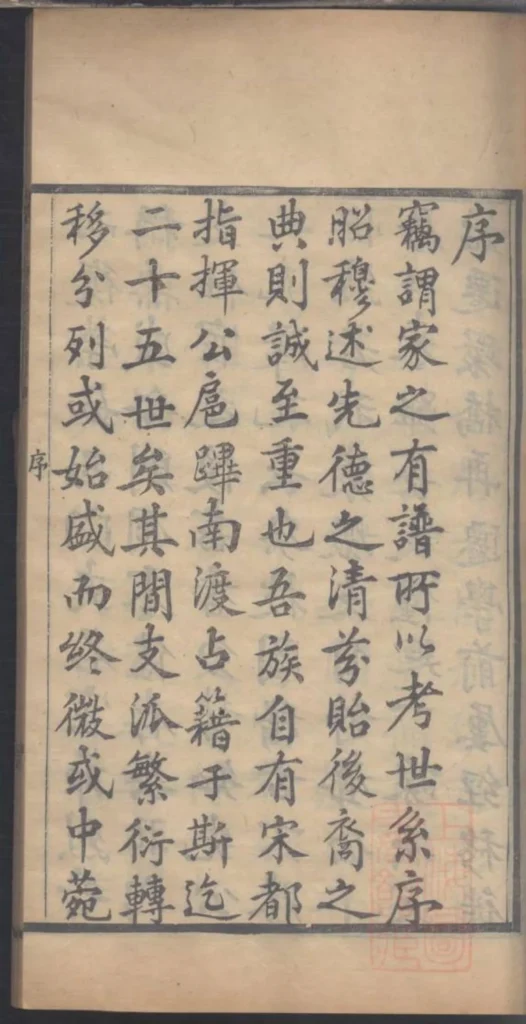 序
竊謂家之有譜所以考世系序
昭穆述先德之清芬貽後裔之
典則誠至重也吾族自有宋都
指揮公扈蹕南渡占籍于斯迄
二十五世矣其間支派繁衍轉
移分列或始盛而終微或中菀
序